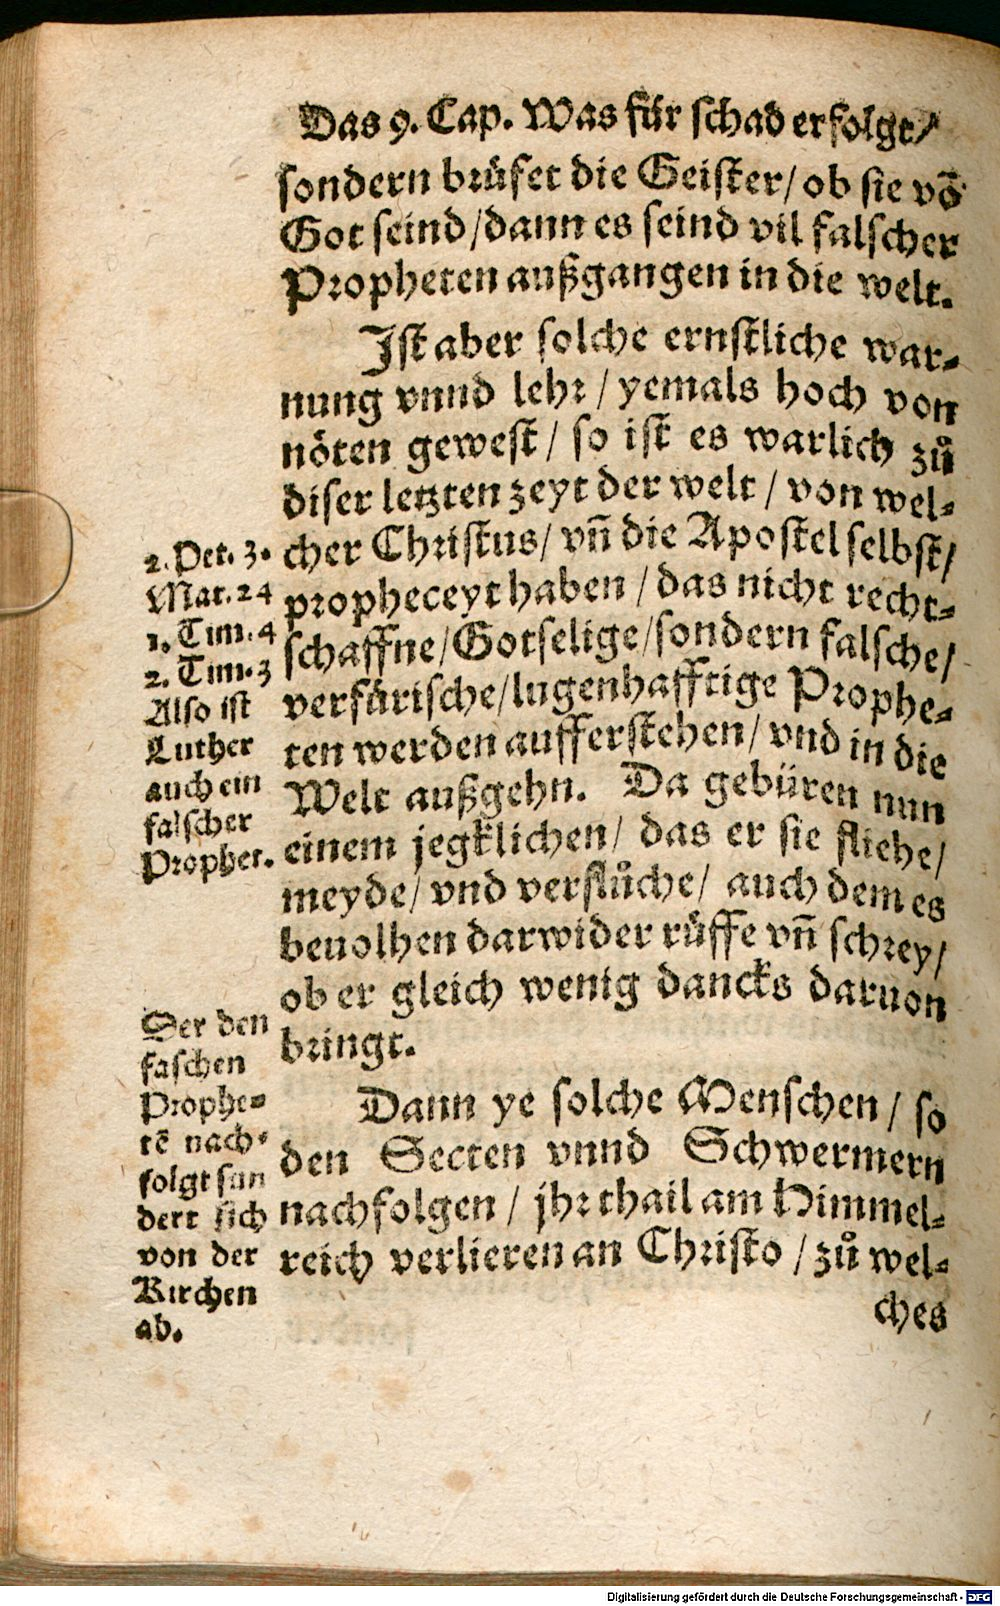 Das 9. Cap. Was für schad erfolgt/
sondern brüfet die Geister/ ob sie võ
Got seind/dann es seind vil falscher
Propheten außgangen in die welt.
Ist aber solche ernstliche war-
nung vnnd lehr / yemals hoch von
nöten gewest / so ist es warlich zů
diser letzten zeyt der welt / von wel-
cher Christus/ vñ die Apostel selbst/
propheceyt haben / das nicht recht-
schaffne/Gotselige/sondern falsche/
verfürische/lugenhafftige Prophe-
ten werden aufferstehen/ vnd in die
Welt außgehn. Da gebüren nun
einem jegklichen/ das er sie fliehe/
meyde/ vnd verflůche/ auch dem es
beuolhen darwider rüffe vñ schrey/
ob er gleich wenig dancks daruon
bringt.
Dann ye solche Menschen / so
den Secten vnnd Schwermern
nachfolgen / jhr thail am Himmel-
reich verlieren an Christo / zů wel-
ches
2. Pet. 3.
Mat. 24
1. Tim. 4
2. Tim. 3
Also ist
Luther
auch ein
falscher
Prophet.
Der den
faschen
Prophe-
tẽ nach-
folgt sun
dert sich
von der
Kirchen
ab.
Digitalisierung gefördert durch die Deutsche Forschungsgemeinschaft - DFG